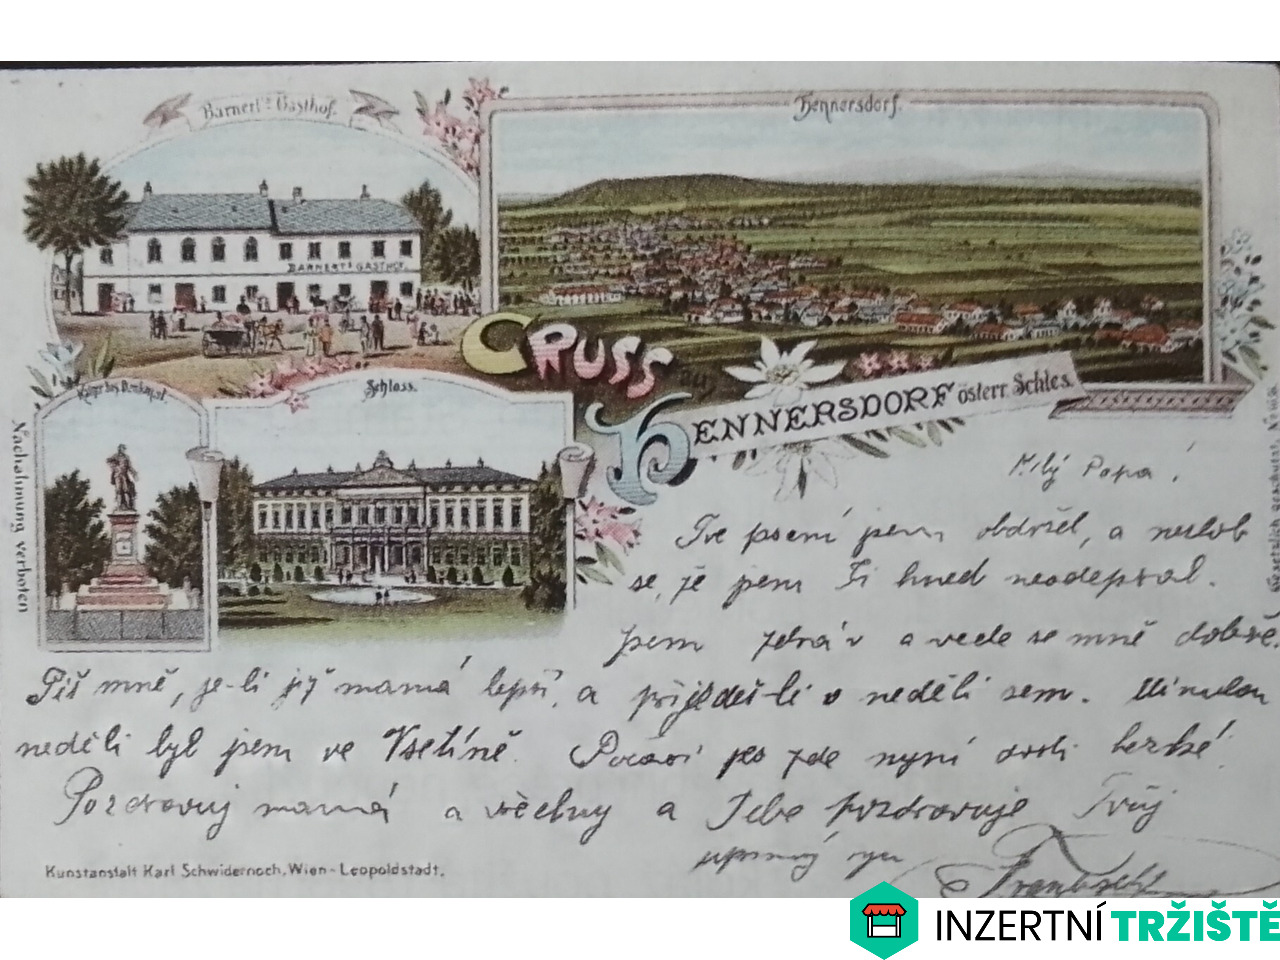 Barnert's Gasthof.
Hennersdorf.
BARNERT'S GASTHOF.
GRUSS aus
HENNERSDORF österr. Schles.
Denkmal
Schloss.
Nachahmung verboten
Gesetzlich geschützt
Milý Papa!
Tvé psaní jsem obdržel, a nezlob
se, že jsem Ti hned neodepsal.
Jsem zdráv a vede se mně dobře.
Piš mně, je-li již mamá lepší, a přijedeš-li v neděli sem. Minulou
neděli byl jsem ve Vsetíně. Počasí jes zde nyní dosti hezké!
Pozdravuj mamá a všechny a Tebe pozdravuje Tvůj
upřímný syn
František
Kunstanstalt Karl Schwidernoch, Wien-Leopoldstadt.
INZERTNÍ TRŽIŠTĚ